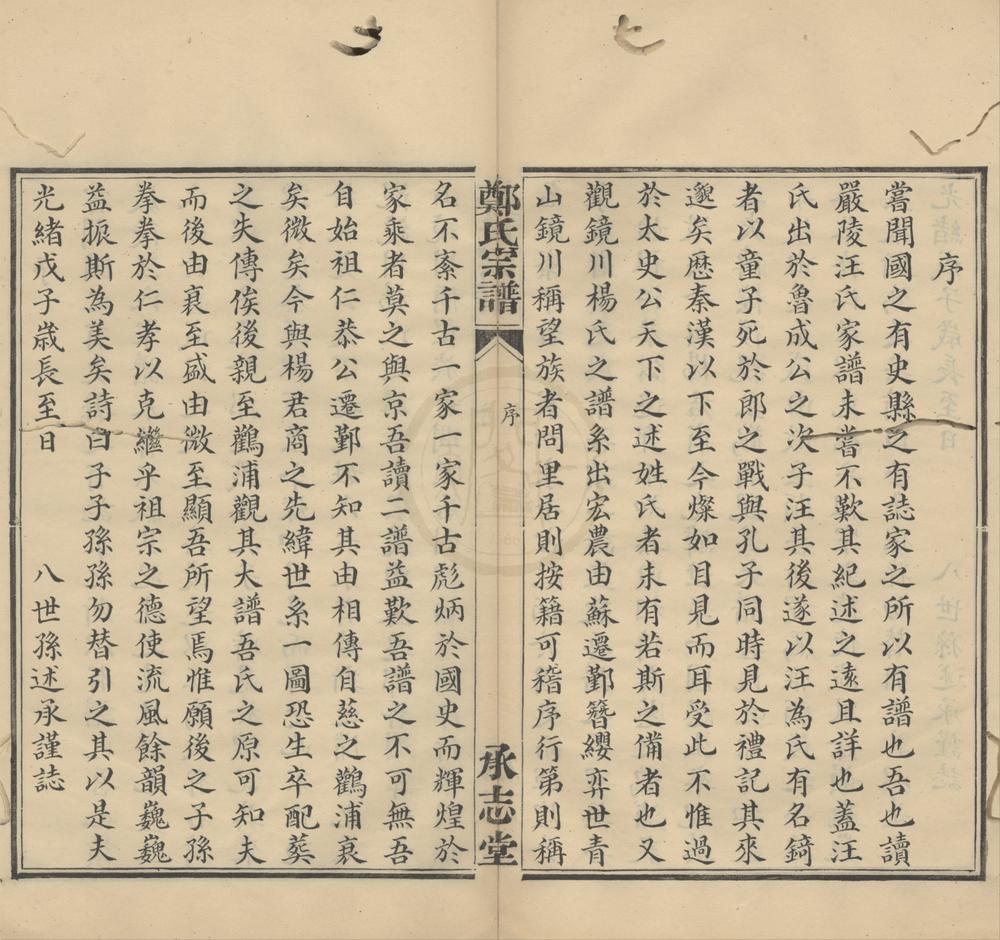 序
嘗聞國之有史縣之有誌家之所以有譜也吾也讀
嚴陵汪氏家譜未嘗不歎其紀述之遠且詳也蓋汪
氏出於魯成公之次子汪其後遂以汪為氏有名錡
者以童子死於郎之戰與孔子同時見於禮記其來
邈矣歷秦漢以下至今燦如目見而耳受此不惟過
於太史公天下之述姓氏者未有若斯之備者也又
觀鏡川楊氏之譜系出宏農由蘇遷鄞簪纓弈世青
山鏡川稱望族者問里居則按籍可稽序行第則稱
鄭氏宗譜
序
承志堂
名不紊千古一家一家千古彪炳於國史而輝煌於
家乘者莫之與京吾讀二譜益歎吾譜之不可無吾
自始祖仁恭公遷鄞不知其由相傳自慈之鸛浦衰
矣微矣今與楊君商之先緯世系一圖恐生卒配葬
之失傳俟後親至鸛浦觀其大譜吾氏之原可知夫
而後由衰至盛由微至顯吾所望焉惟願後之子孫
拳拳於仁孝以克繼乎祖宗之德使流風餘韻巍巍
益振斯為美矣詩曰子子孫孫勿替引之其以是夫
光緒戊子歲長至日　八世孫述承謹誌